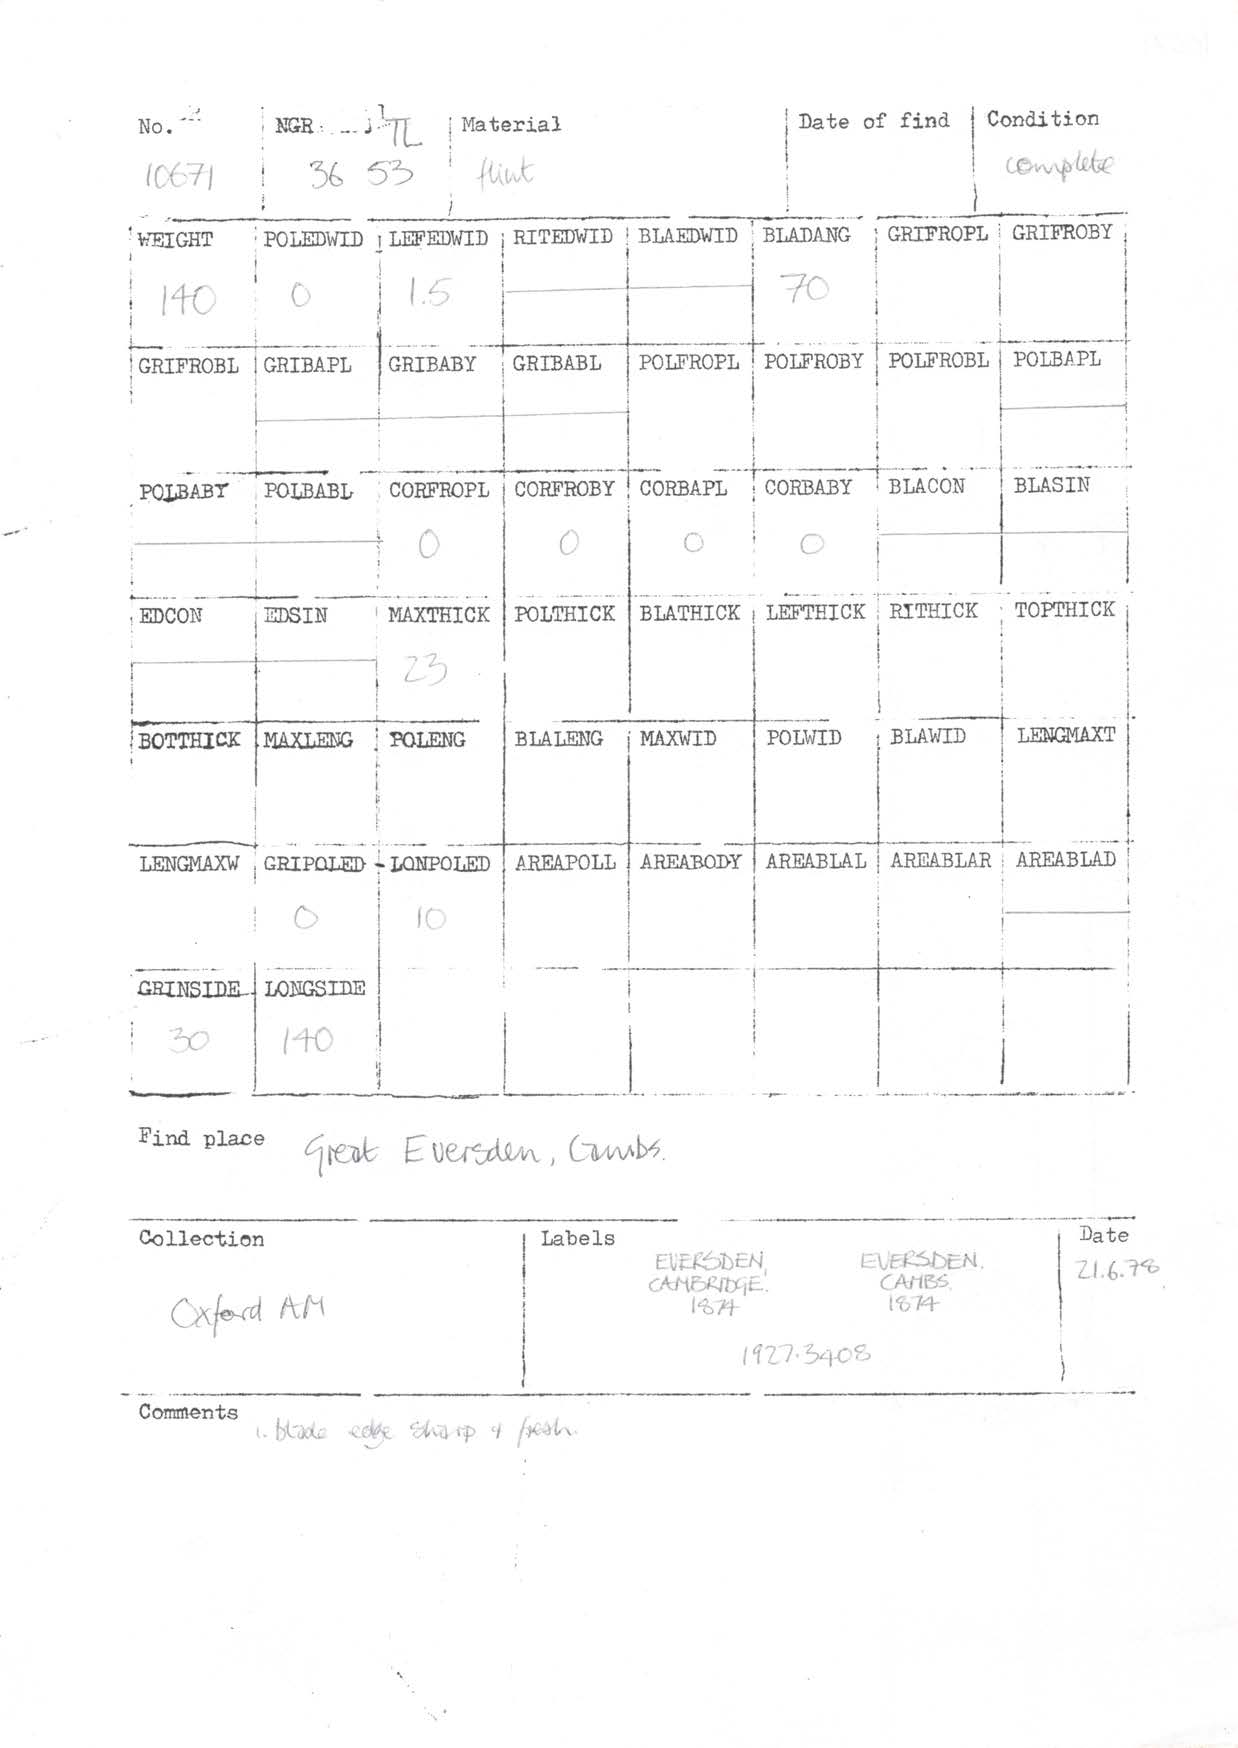 No. NGR TL Material Date of find Condition
10671 36 53 flint complete
WEIGHT POLEDWID LEFEDWID RITEDWID BLAEDWID BLADANG GRIFROPL GRIFROBY
140 0 1.5 70
GRIFROBL GRIBAPL GRIBABY GRIBABL POLFROPL POLFROBY POLFROBL POLBAPL
POLBABY POLBABL CORFROPL CORFROBY CORBAPL CORBABY BLACON BLASIN
0 0 0 0
EDCON EDSIN MAXTHICK POLTHICK BLATHICK LEFTHICK RITHICK TOPTHICK
23
BOTTHICK MAXLENG POLENG BLALENG MAXWID POLWID BLAWID LENGMAXT
LENGMAXW GRIPOLED LONPOLED AREAPOLL AREABODY AREABLAL AREABLAR AREABLAD
0 10
GRINSIDE LONGSIDE
30 140
Find place Great Eversden, Cambs.
Collection Labels Date
EVERSDEN, EVERSDEN. 21.6.78
CAMBRIDGE. CAMBS.
1874 1874
Oxford AM
1927.3408
Comments
1. blade edge sharp & fresh.